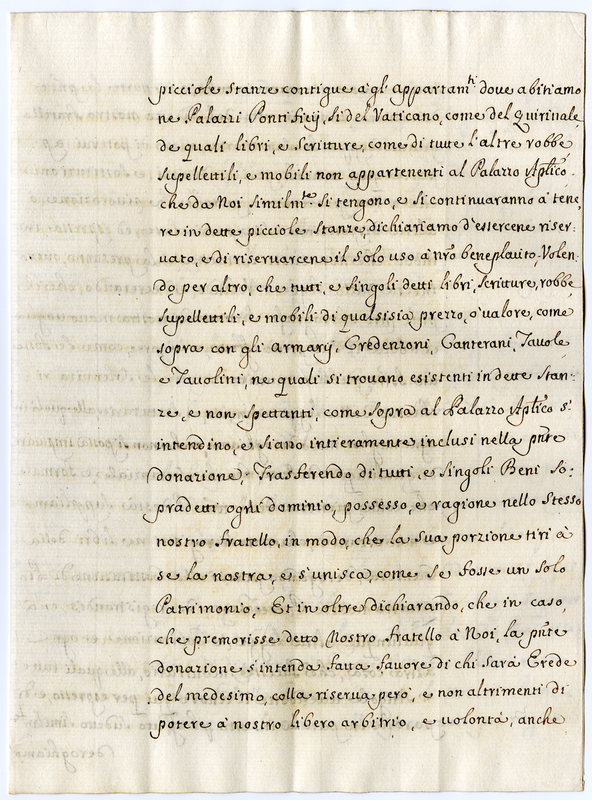 picciole stanze contigue à gl'appartam.ti dove abitiamo
ne Palazzi Pontificij, sì del Vaticano, come del Quirinale,
de quali libri, e scritture, come di tutte l'altre robbe
supellettili, e mobili non appartenenti al Palazzo Aplico.
che da Noi similm.te si tengono, e si continuaranno à tene,
re in dette picciole stanze, dichiariamo d'essercene riser:
vato, e di riservarcene il solo uso à nro beneplacito, Volen:
do per altro, che tutti, e singoli detti libri, scritture, robbe
supellettili, e mobili di qualsisia prezzo, o valore, come
sopra con gli armarij, Credenzoni, Canterani, Tavole
e Tavolini, ne quali si trovano esistenti in dette stan:
ze, e non spettanti, come sopra al Palazzo Aplico s'
intendino, e siano intieramente inclusi nella pnte
donazione, Trasferendo di tutti, e singoli Beni so:
pradetti ogni dominio, possesso, e ragione nello stesso
nostro fratello, in modo, che la sua porzione tiri à
se la nostra, e s'unisca, come se fosse un solo
Patrimonio, Et in oltre dichiarando, che in caso,
che premorisse detto Nostro fratello à Noi, la pnte
donazione s'intenda fatta favore di chi sarà Erede
del medesimo, colla riserva però, e non altrimenti di
potere à nostro libero arbitrio, e volontà, anche